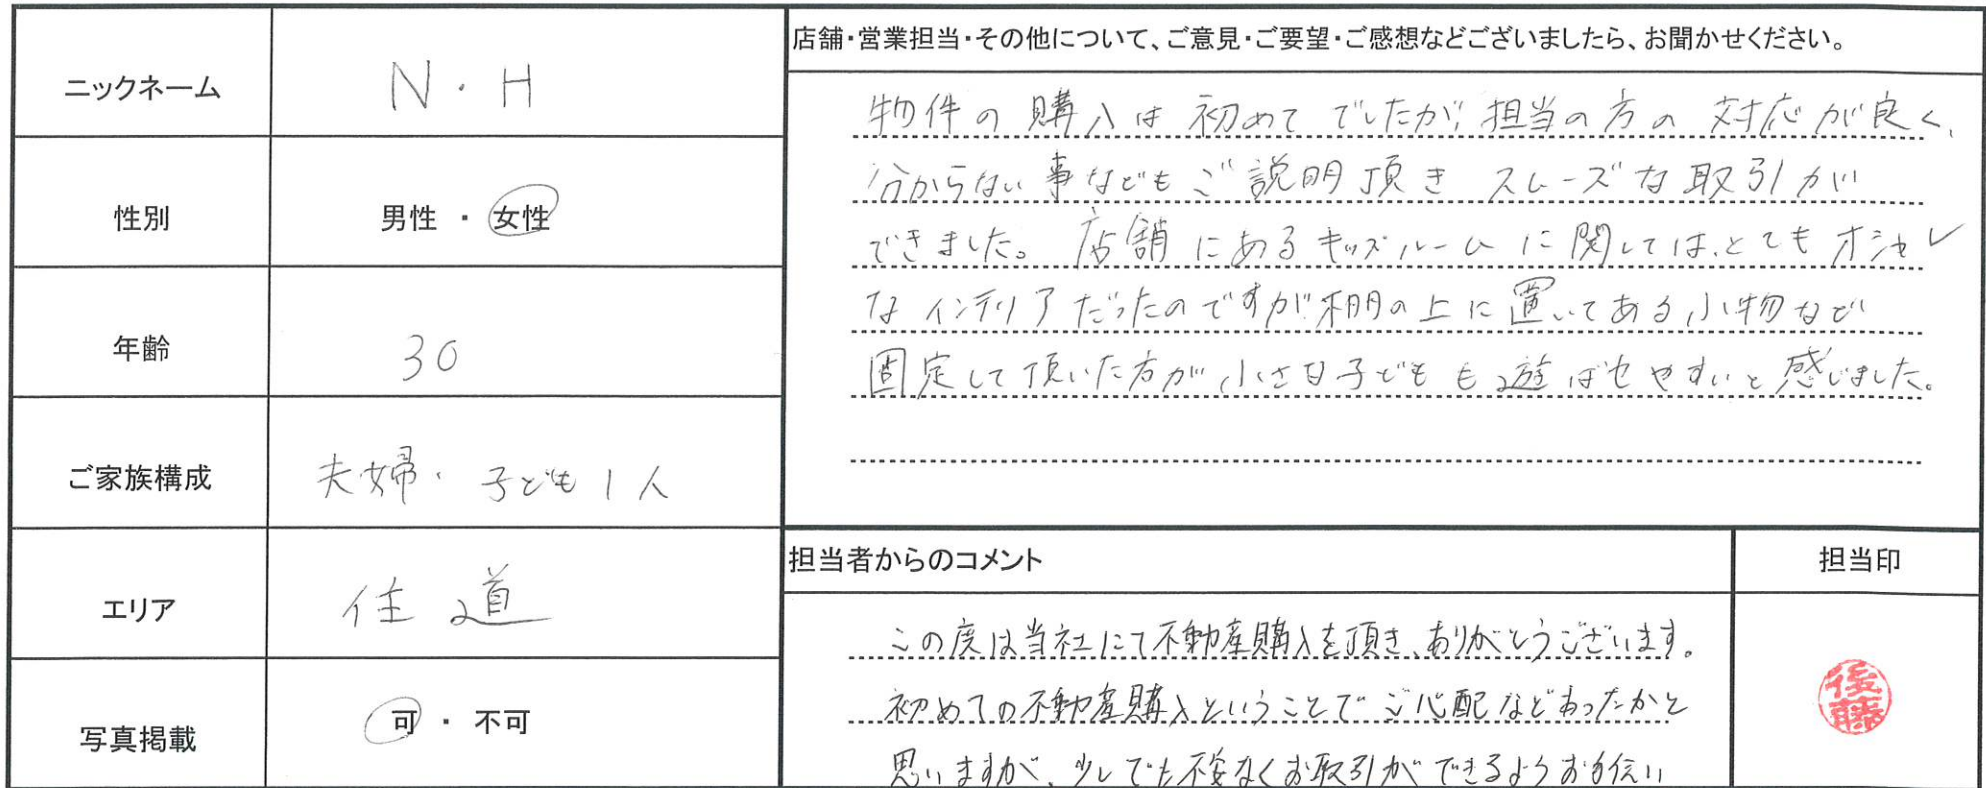 ニックネーム
N・H
性別
男性 ・ 女性
年齢
30
ご家族構成
夫婦・子ども1人
エリア
住道
写真掲載
可 ・ 不可
店舗・営業担当・その他について、ご意見・ご要望・ご感想などございましたら、お聞かせください。
物件の購入は初めてでしたが、担当の方の対応が良く、
分からない事などもご説明頂きスムーズな取引が
できました。店舗にあるキッズルームに関しては、とてもオシャレ
なインテリアだったのですが棚の上に置いてある小物など
固定して頂いた方が小さな子どもも遊ばせやすいと感じました。
担当者からのコメント
この度は当社にて不動産購入を頂き、ありがとうございます。
初めての不動産購入ということでご心配などあったかと
思いますが、少しでも不安なくお取引ができるようお手伝い
担当印
後藤